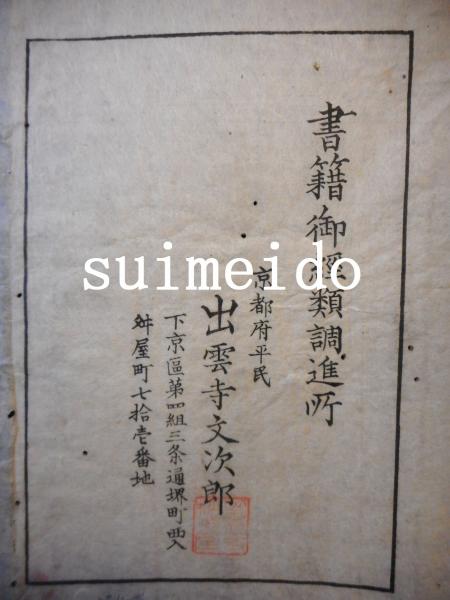 書籍御經類調進所
京都府平民
出雲寺文次郎
下京區第四組三条通堺町西入
舛屋町七拾壱番地
suimeido